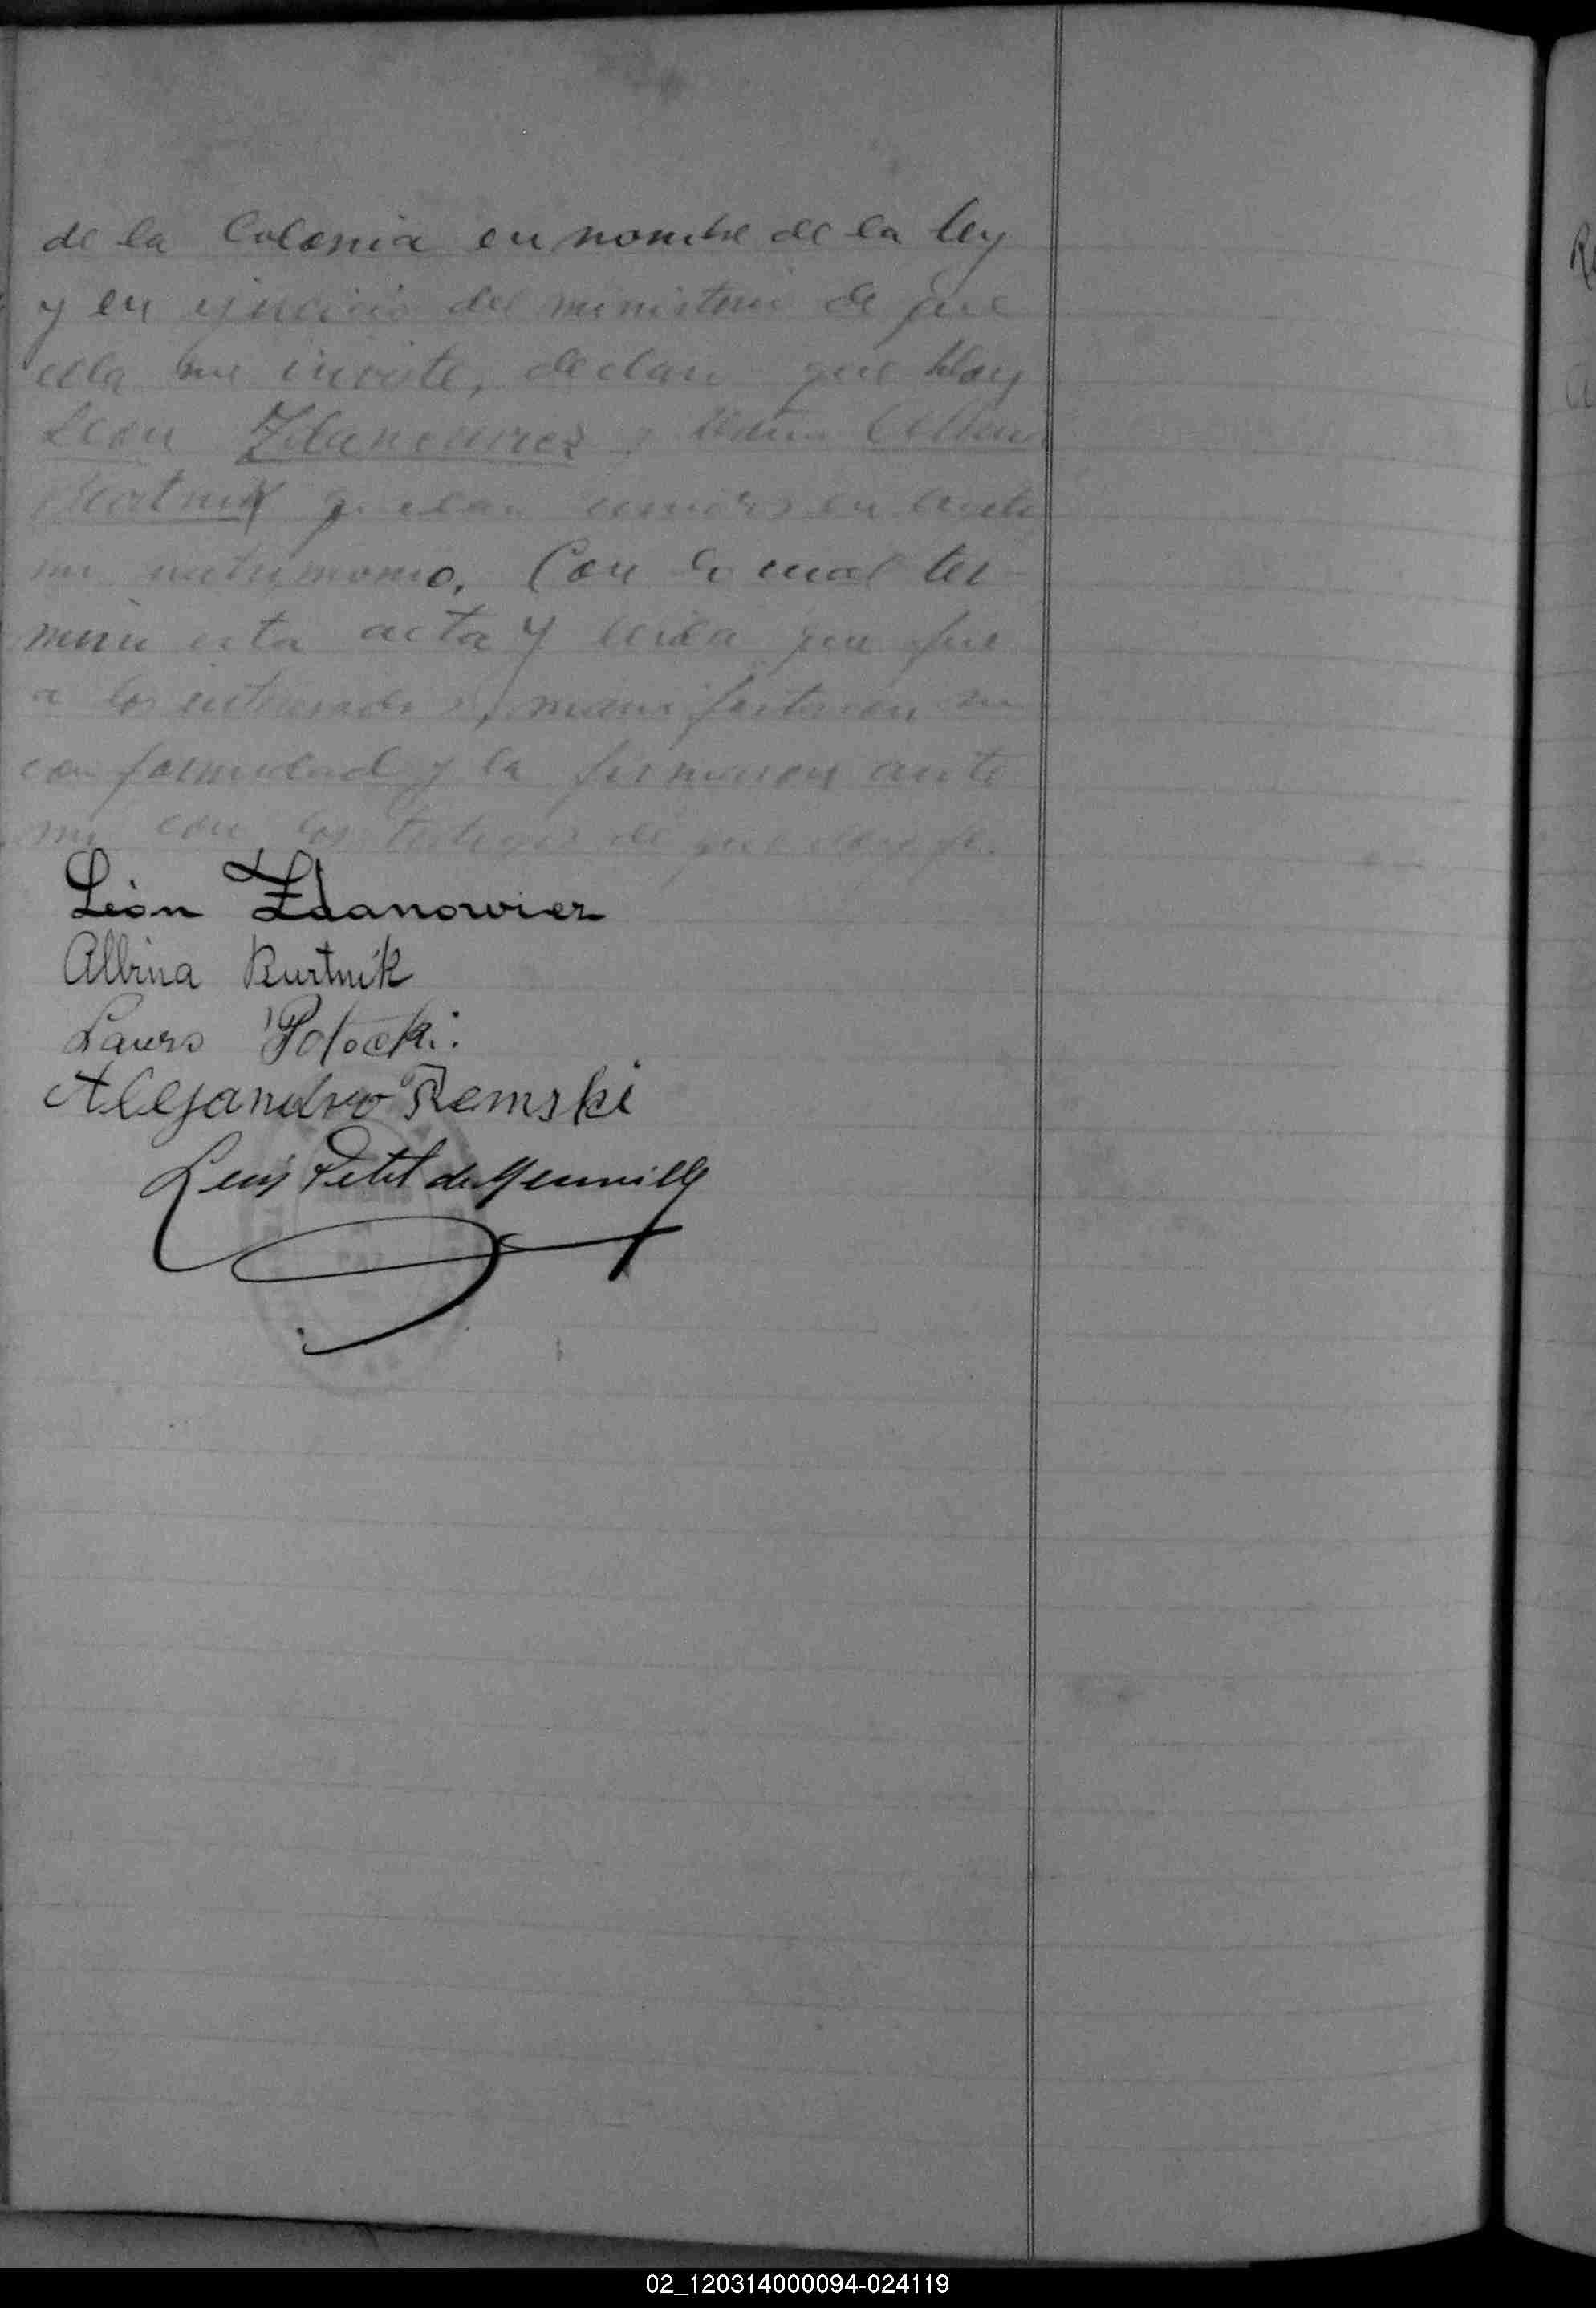 de la Colonia en nombre de la ley
y en ejercicio del ministerio de que
ella me inviste, declaro que Don
Leon Zdanowicz y Doña Albina
quedan unidos en legiti
mo matrimonio. Con lo cual ter-
mino esta acta y leida que fue
a los interesados, manifestaron su
conformidad y la firmaron ante
mi con los testigos de que doy fe.
León Zdanowicz
Albina Kurtnik
Lauro Potocki.
Alejandro Remski
Luis Petit de Meurville
02_120314000094-024119